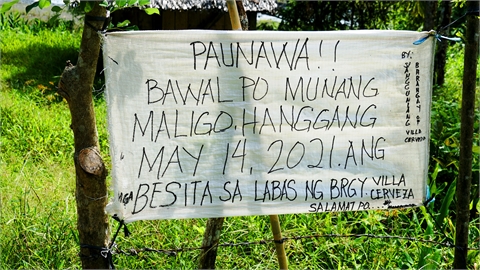 PAUNAWA!!
BAWAL PO MUNANG
MALIGO. HANGGANG
MAY 14, 2021. ANG
MGA BESITA SA LABAS NG BRGY. VILLA CERVEZA
SALAMAT PO...
BY:
BRRANGAY OF
VILLA
CERVEZA